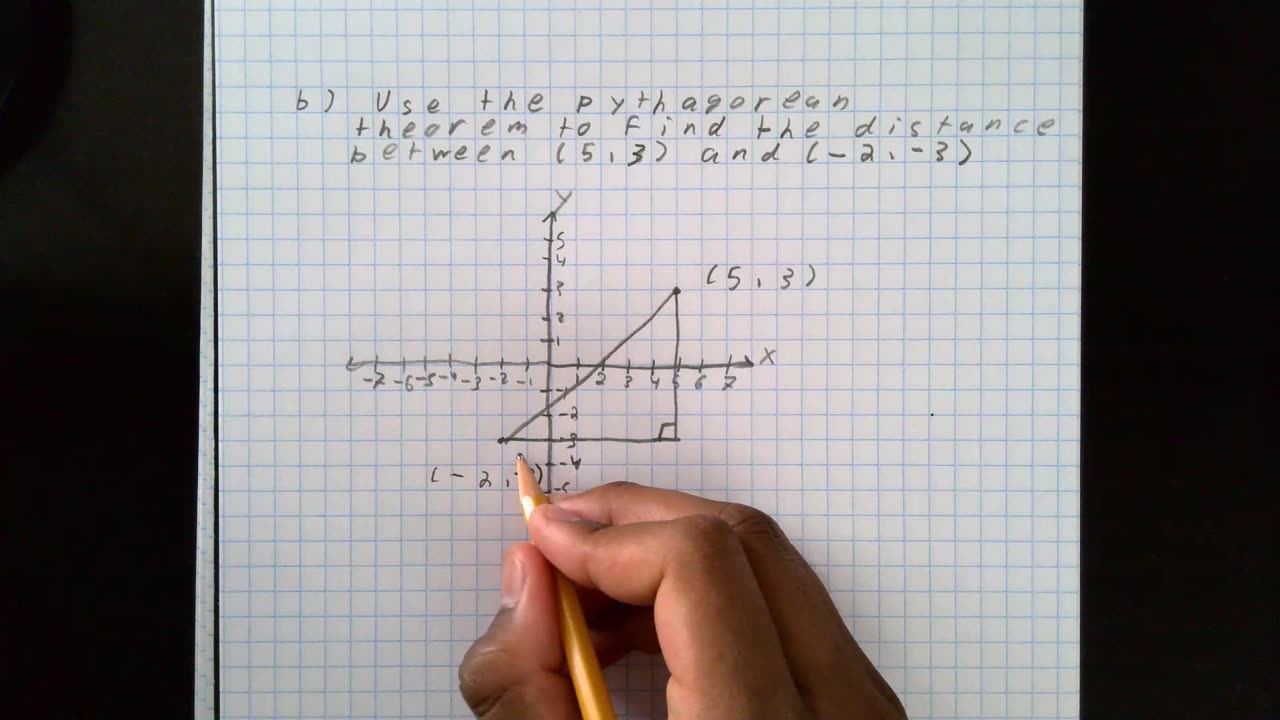 b) Use the pythagorean
theorem to find the distance
between (5,3) and (-2,-3)
Y
5
4
3
2
1
(5,3)
-7 -6 -5 -4 -3 -2 -1 2 3 4 5 6 7 X
-1
-2
-3
-4
-5
(-2,